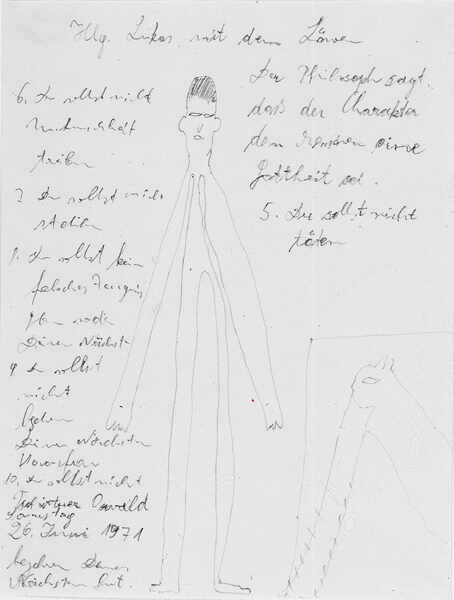 Hlg. Lukas, mit dem Löwen
Der Philosoph sagt.
dass der Charakter
dem Menschen eine
Gottheit sei.
5. Du sollst nicht
töten
6. Du sollst nicht
Unkeuschheit
treiben
7. Du sollst nicht
stehlen
8. Du sollst kein
falsches Zeugnis
geben wider
Deinen Nächsten
9 Du sollst
nicht
begehren
Deines Nächsten
Hausfrau
10. Du sollst nicht
Tschirtner Oswald
Samstag
26. Juni 1971
begehren Deines
Nächsten Gut.